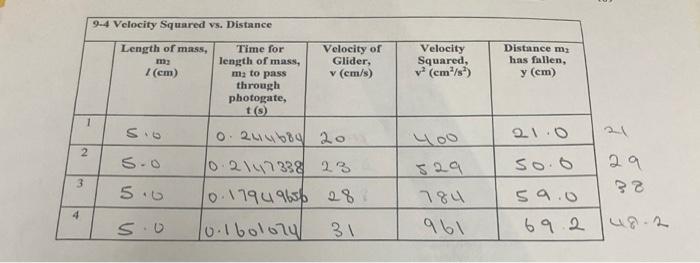 9-4 Velocity Squared vs. Distance
Length of mass, m₂ l (cm) Time for length of mass, m₂ to pass through photogate, t (s) Velocity of Glider, v (cm/s) Velocity Squared, v² (cm²/s²) Distance m₂ has fallen, y (cm)
1 5.0 0.244684 20 400 21.0 21
2 5.0 0.2147338 23 529 50.0 29
3 5.0 28 784 59.0 38
4 5.0 0.1601074 31 961 69.2 48.2